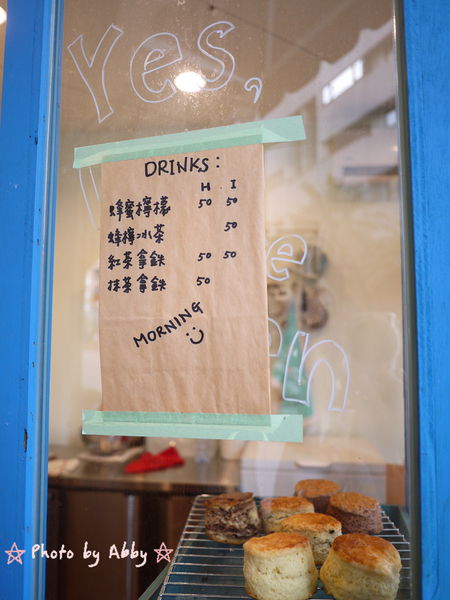 Yes,
DRINKS:
H I
蜂蜜檸檬 50 50
蜂檸冰茶 50
紅茶拿鐵 50 50
抹茶拿鐵 50
MORNING
☆ Photo by Abby ☆